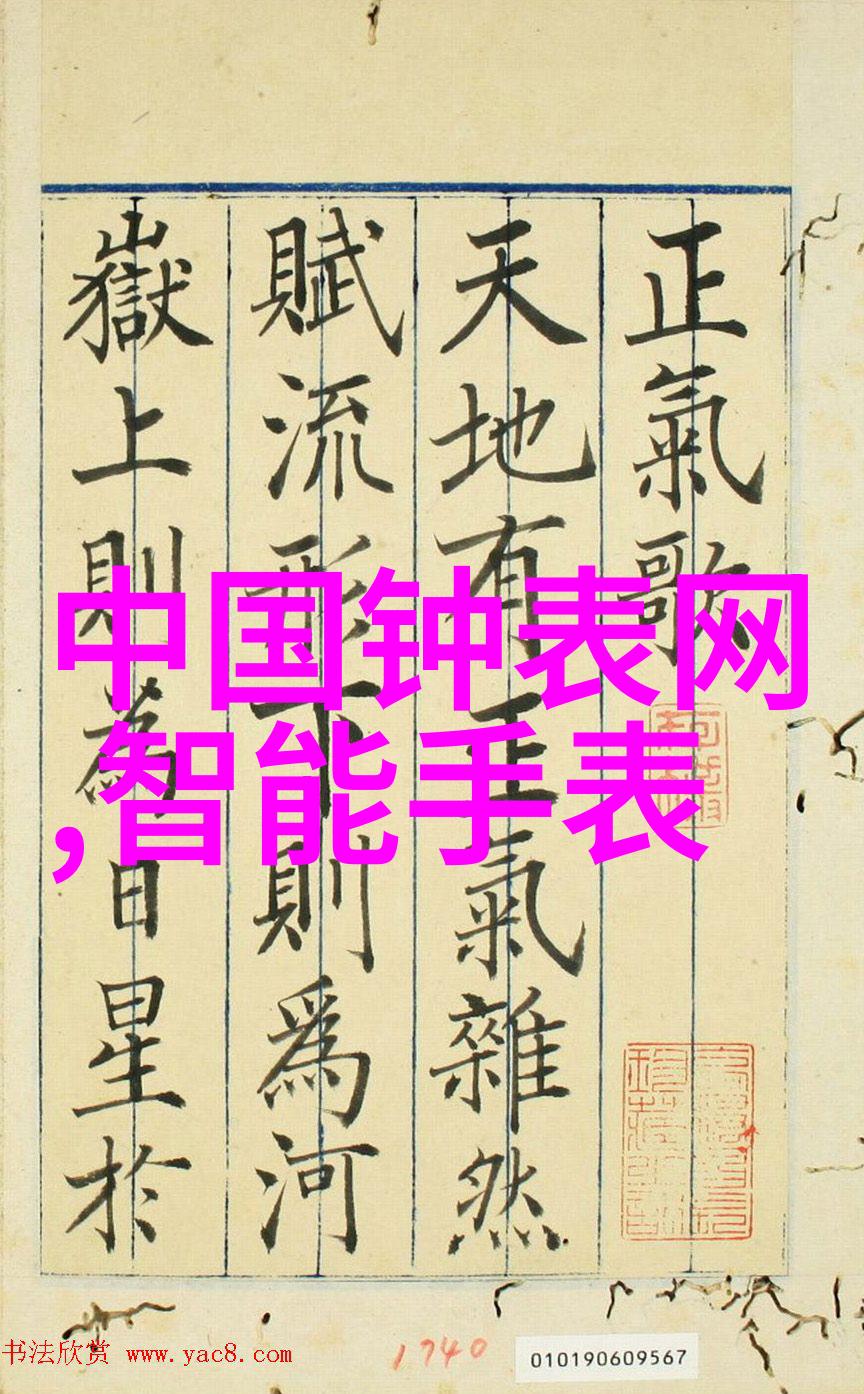 正氣歌
天地有正氣雜然
賦流形下則爲河
嶽上則為日星於
中国钟表网
,智能手表
书法欣赏 www.yac8.com
1740
010190609567